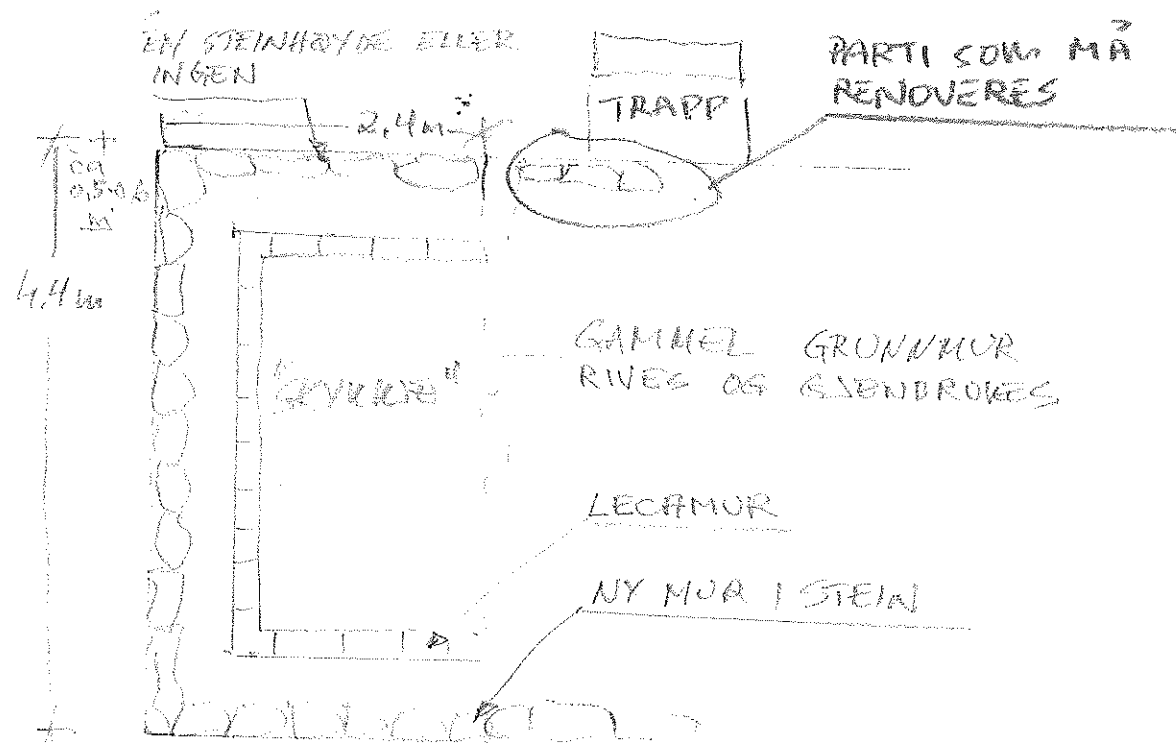 EN STEINHØYDE ELLER
INGEN
2,4 m
TRAPP
PARTI SOM MÅ
RENOVERES
ca
0,5-0,6
m
4,4 m
GAMMEL GRUNNMUR
RIVES OG GJENBRUKES
LECAMUR
NY MUR I STEIN